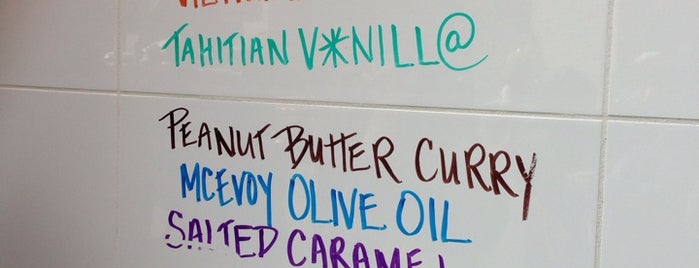 TAHITIAN V*NILL@
PEANUT BUTTER CURRY
MCEVOY OLIVE OIL
SALTED CARAMEL